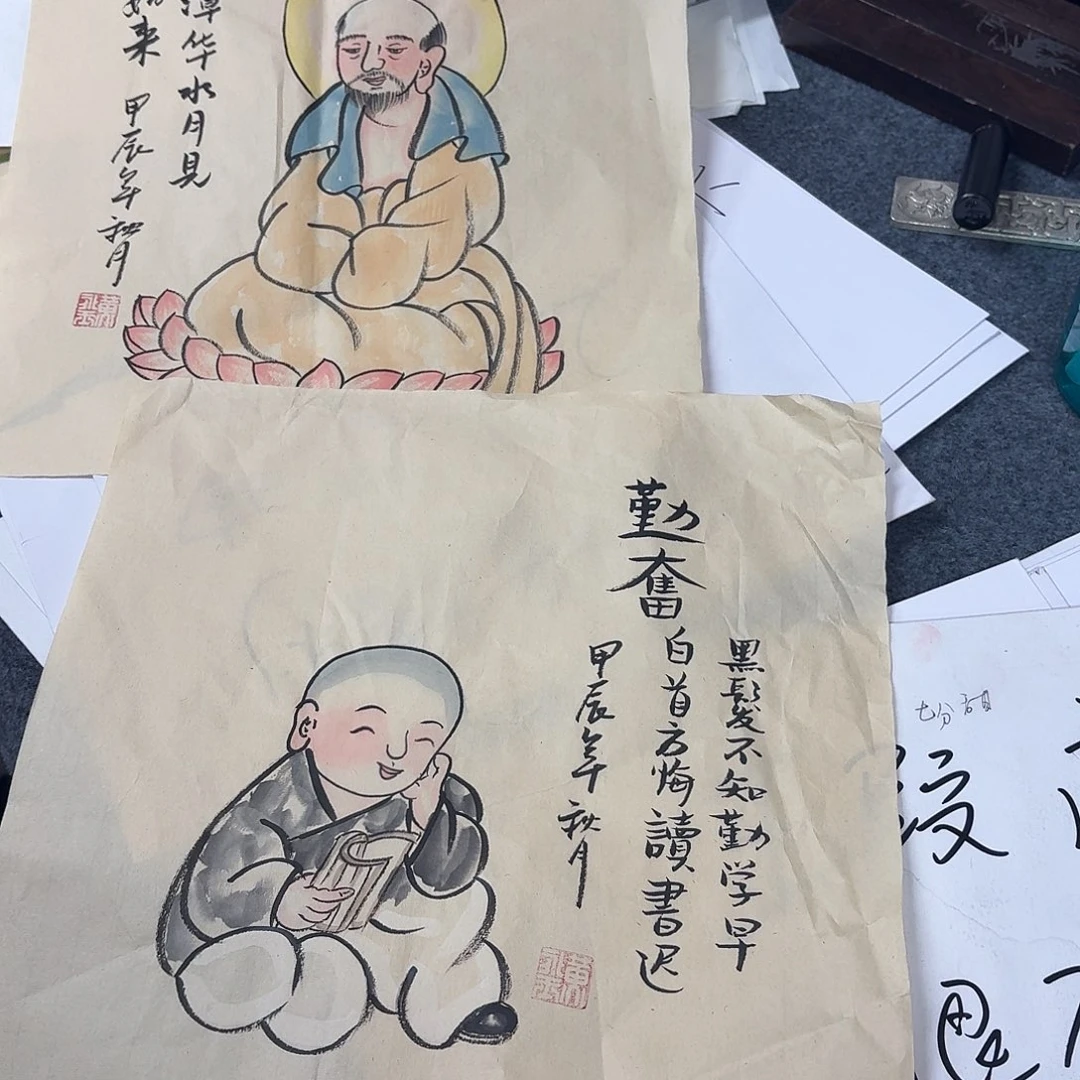 潭华水月見
如来 甲辰年 秋月
勤奮
黑髮不知勤学早
白首方悔讀書迟
甲辰年 秋月
七分